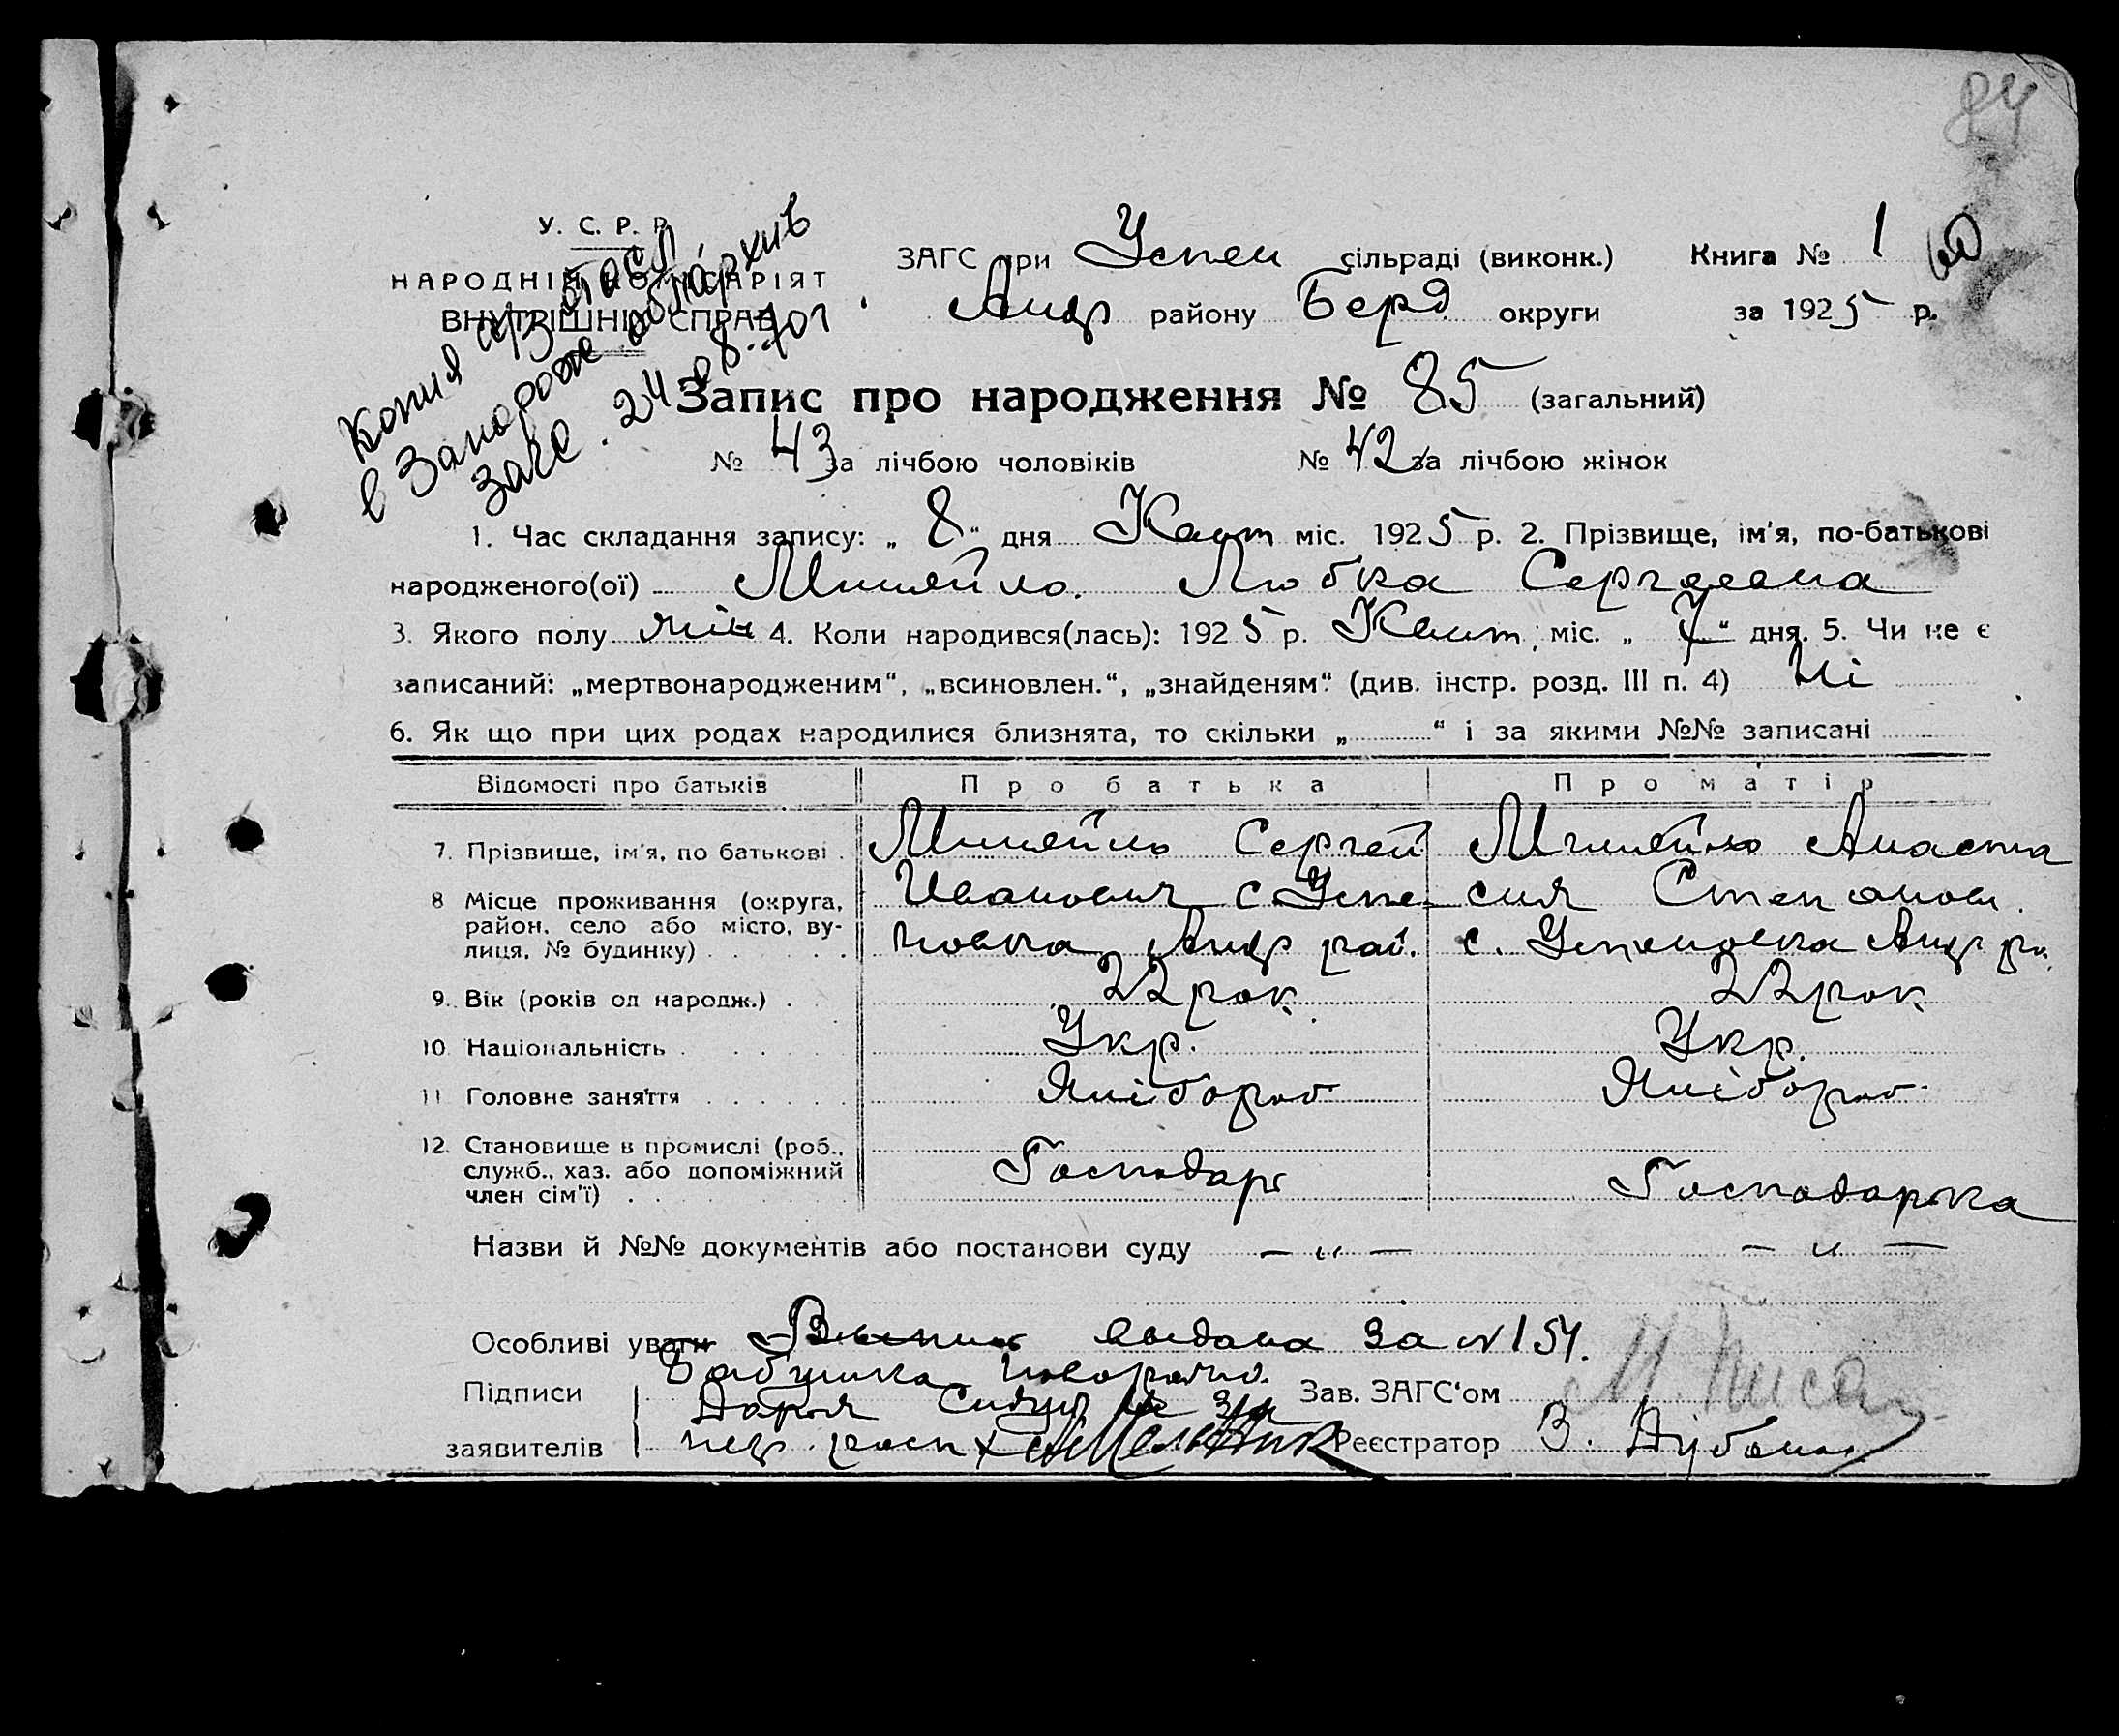 84
У. С. Р. Р.
НАРОДНІЙ КОМІСАРІЯТ
ВНУТРІШНІХ СПРАВ
Копия
в Запорож облархив
загс. 24 8. 70 г
ЗАГС при Успен сільраді (виконк.) Книга № 1
Андр району Берд округи за 1925 р.
Запис про народження № 85 (загальний)
№ 43 за лічбою чоловіків № 42 за лічбою жінок
1. Час складання запису: „ 8 “ дня міс. 1925 р. 2. Прізвище, ім'я, по-батькові
народженого(ої) Любка Сергеевна
3. Якого полу жін 4. Коли народився(лась): 1925 р. міс. „ 7 “ дня. 5. Чи не є
записаний: „мертвонародженим“, „всиновлен.“, „знайденям“ (див. інстр. розд. III п. 4) Ні
6. Як що при цих родах народилися близнята, то скільки „ “ і за якими №№ записані
Відомості про батьків Про батька Про матір
7. Прізвище, ім'я, по батькові . Сергей Анаста
8 Місце проживання (округа, Иванович с Успе- сия Степанов.
район, село або місто, ву-
лиця, № будинку) . . . . . . новка Андр рай. с. Успеновка Андр ра.
9. Вік (років од народж.) . 22 рок 22 рок
10. Національність . . . . Укр. Укр.
11 Головне заняття . . . . . . Хлібороб Хлібороб
12. Становище в промислі (роб.,
служб., хаз. або допоміжний Господарь Господарка
член сім'ї) . . . . . .
Назви й №№ документів або постанови суду — „ — — „ —
Особливі уваги Выпись выдана за №154.
Підписи Бабушка Зав. ЗАГС'ом М. Писа
Дарья за
заявителів негр. расп АМельник Реєстратор В.